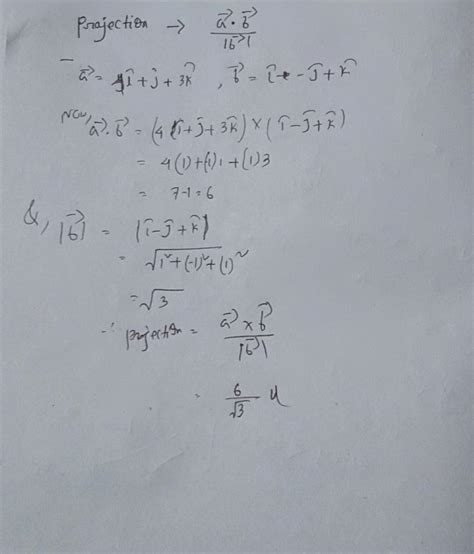 Projection → \frac{\vec{a} \cdot \vec{b}}{|\vec{b}|}
\vec{a} = 4\hat{i} + \hat{j} + 3\hat{k} , \vec{b} = \hat{i} - \hat{j} + \hat{k}
Now, \vec{a} \cdot \vec{b} = (4\hat{i} + \hat{j} + 3\hat{k}) × (\hat{i} - \hat{j} + \hat{k})
= 4(1) + (-1)1 + (1)3
= 7-1 = 6
&, |\vec{b}| = |\hat{i} - \hat{j} + \hat{k}|
= \sqrt{1^2 + (-1)^2 + (1)^2}
= \sqrt{3}
∴ projection = \frac{\vec{a} × \vec{b}}{|\vec{b}|}
= \frac{6}{\sqrt{3}} u